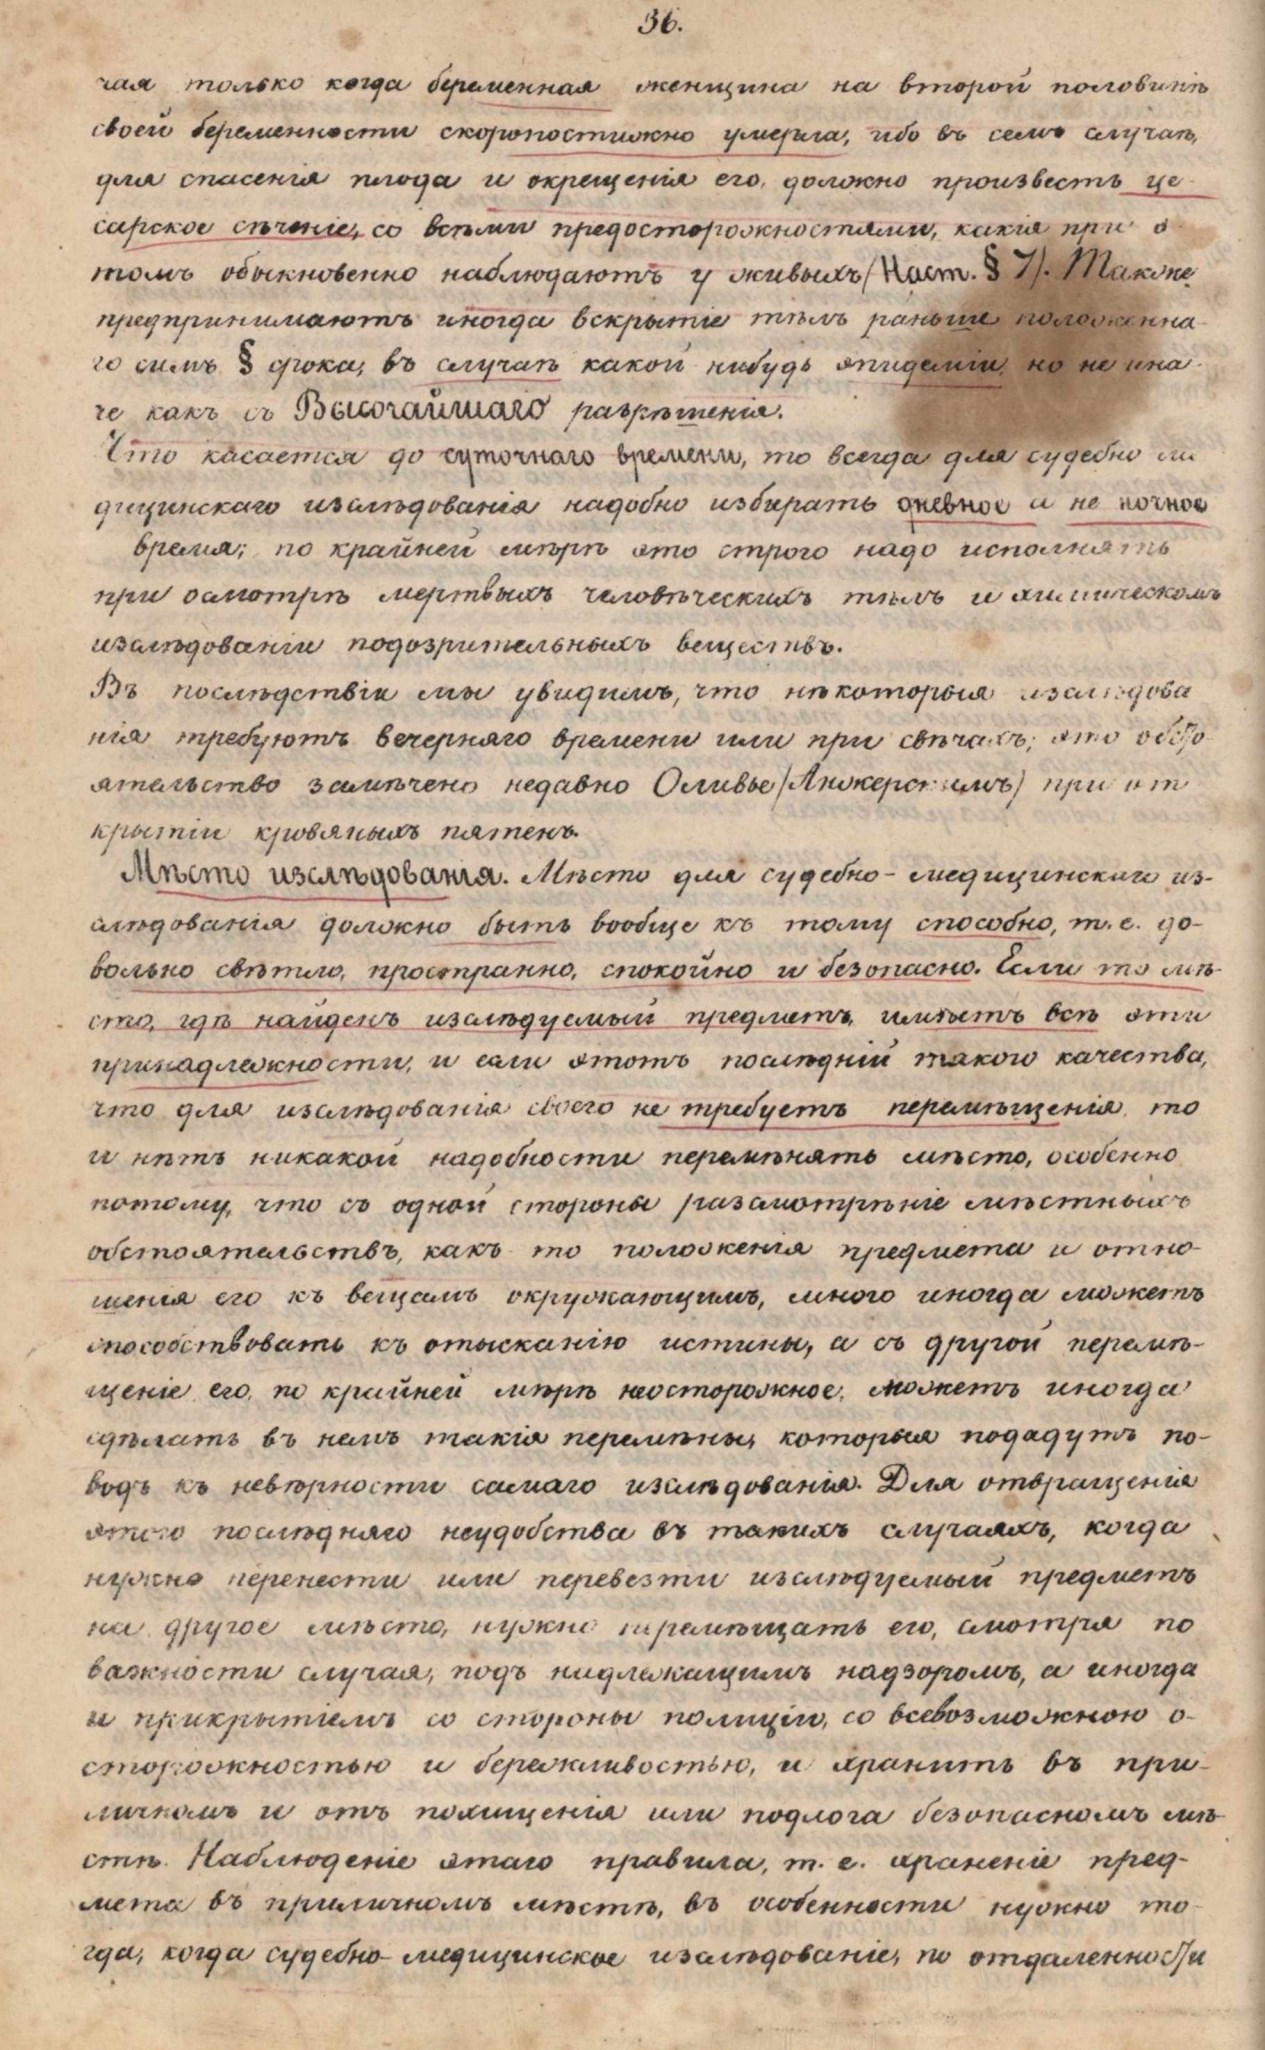 36.
чая только когда беременная женщина на второй половинѣ
своей беременности скоропостижно умерла, ибо въ семъ случаѣ,
для спасенія плода и окрещенія его, должно произвесть це-
сарское сѣченіе, со всѣми предосторожностями, какія при э
томъ обыкновенно наблюдаютъ у живыхъ (Наст. § 7). Также
предпринимаютъ иногда вскрытіе тѣлъ раньше положенна-
го симъ § срока, въ случаѣ какой нибудь эпидеміи, но не ина-
че какъ съ Высочайшаго разрѣшенія.
Что касается до суточнаго времени, то всегда для судебно ме
дицинскаго изслѣдованія надобно избирать дневное а не ночное
время; по крайней мѣрѣ это строго надо исполнять
при осмотрѣ мертвыхъ человѣческихъ тѣлъ и химическомъ
изслѣдованіи подозрительныхъ веществъ.
Въ послѣдствіи мы увидимъ, что нѣкоторыя изслѣдова
нія требуютъ вечерняго времени или при свѣчахъ; это обсто
ятельство замѣчено недавно Оливье (Анжерскимъ) при от
крытіи кровяныхъ пятенъ.
Мѣсто изслѣдованія. Мѣсто для судебно-медицинскаго из-
слѣдованія должно быть вообще къ тому способно, т. е. до-
вольно свѣтло, пространно, спокойно и безопасно. Если то мѣ-
сто, гдѣ найденъ изслѣдуемый предметъ, имѣетъ всѣ эти
принадлежности, и если этотъ послѣдній такого качества,
что для изслѣдованія своего не требуетъ перемѣщенія, то
и нѣтъ никакой надобности перемѣнять мѣсто, особенно
потому, что съ одной стороны разсмотрѣніе мѣстныхъ
обстоятельствъ, какъ то положенія предмета и отно-
шенія его къ вещамъ окружающимъ, много иногда можетъ
способствовать къ отысканію истины, а съ другой перемѣ-
щеніе его, по крайней мѣрѣ неосторожное, можетъ иногда
сдѣлать въ немъ такія перемѣны, которыя подадутъ по-
водъ къ невѣрности самаго изслѣдованія. Для отвращенія
этого послѣдняго неудобства въ такихъ случаяхъ, когда
нужно перенести или перевезти изслѣдуемый предметъ
на другое мѣсто, нужно перемѣщать его, смотря по
важности случая, подъ надлежащимъ надзоромъ, а иногда
и прикрытіемъ со стороны полиціи, со всевозможною о-
сторожностью и бережливостью, и хранить въ при-
личномъ и отъ похищенія или подлога безопасномъ мѣ-
стѣ. Наблюденіе этаго правила, т. е. храненіе пред-
мета въ приличномъ мѣстѣ, въ особенности нужно то-
гда, когда судебно-медицинское изслѣдованіе, по отдаленности